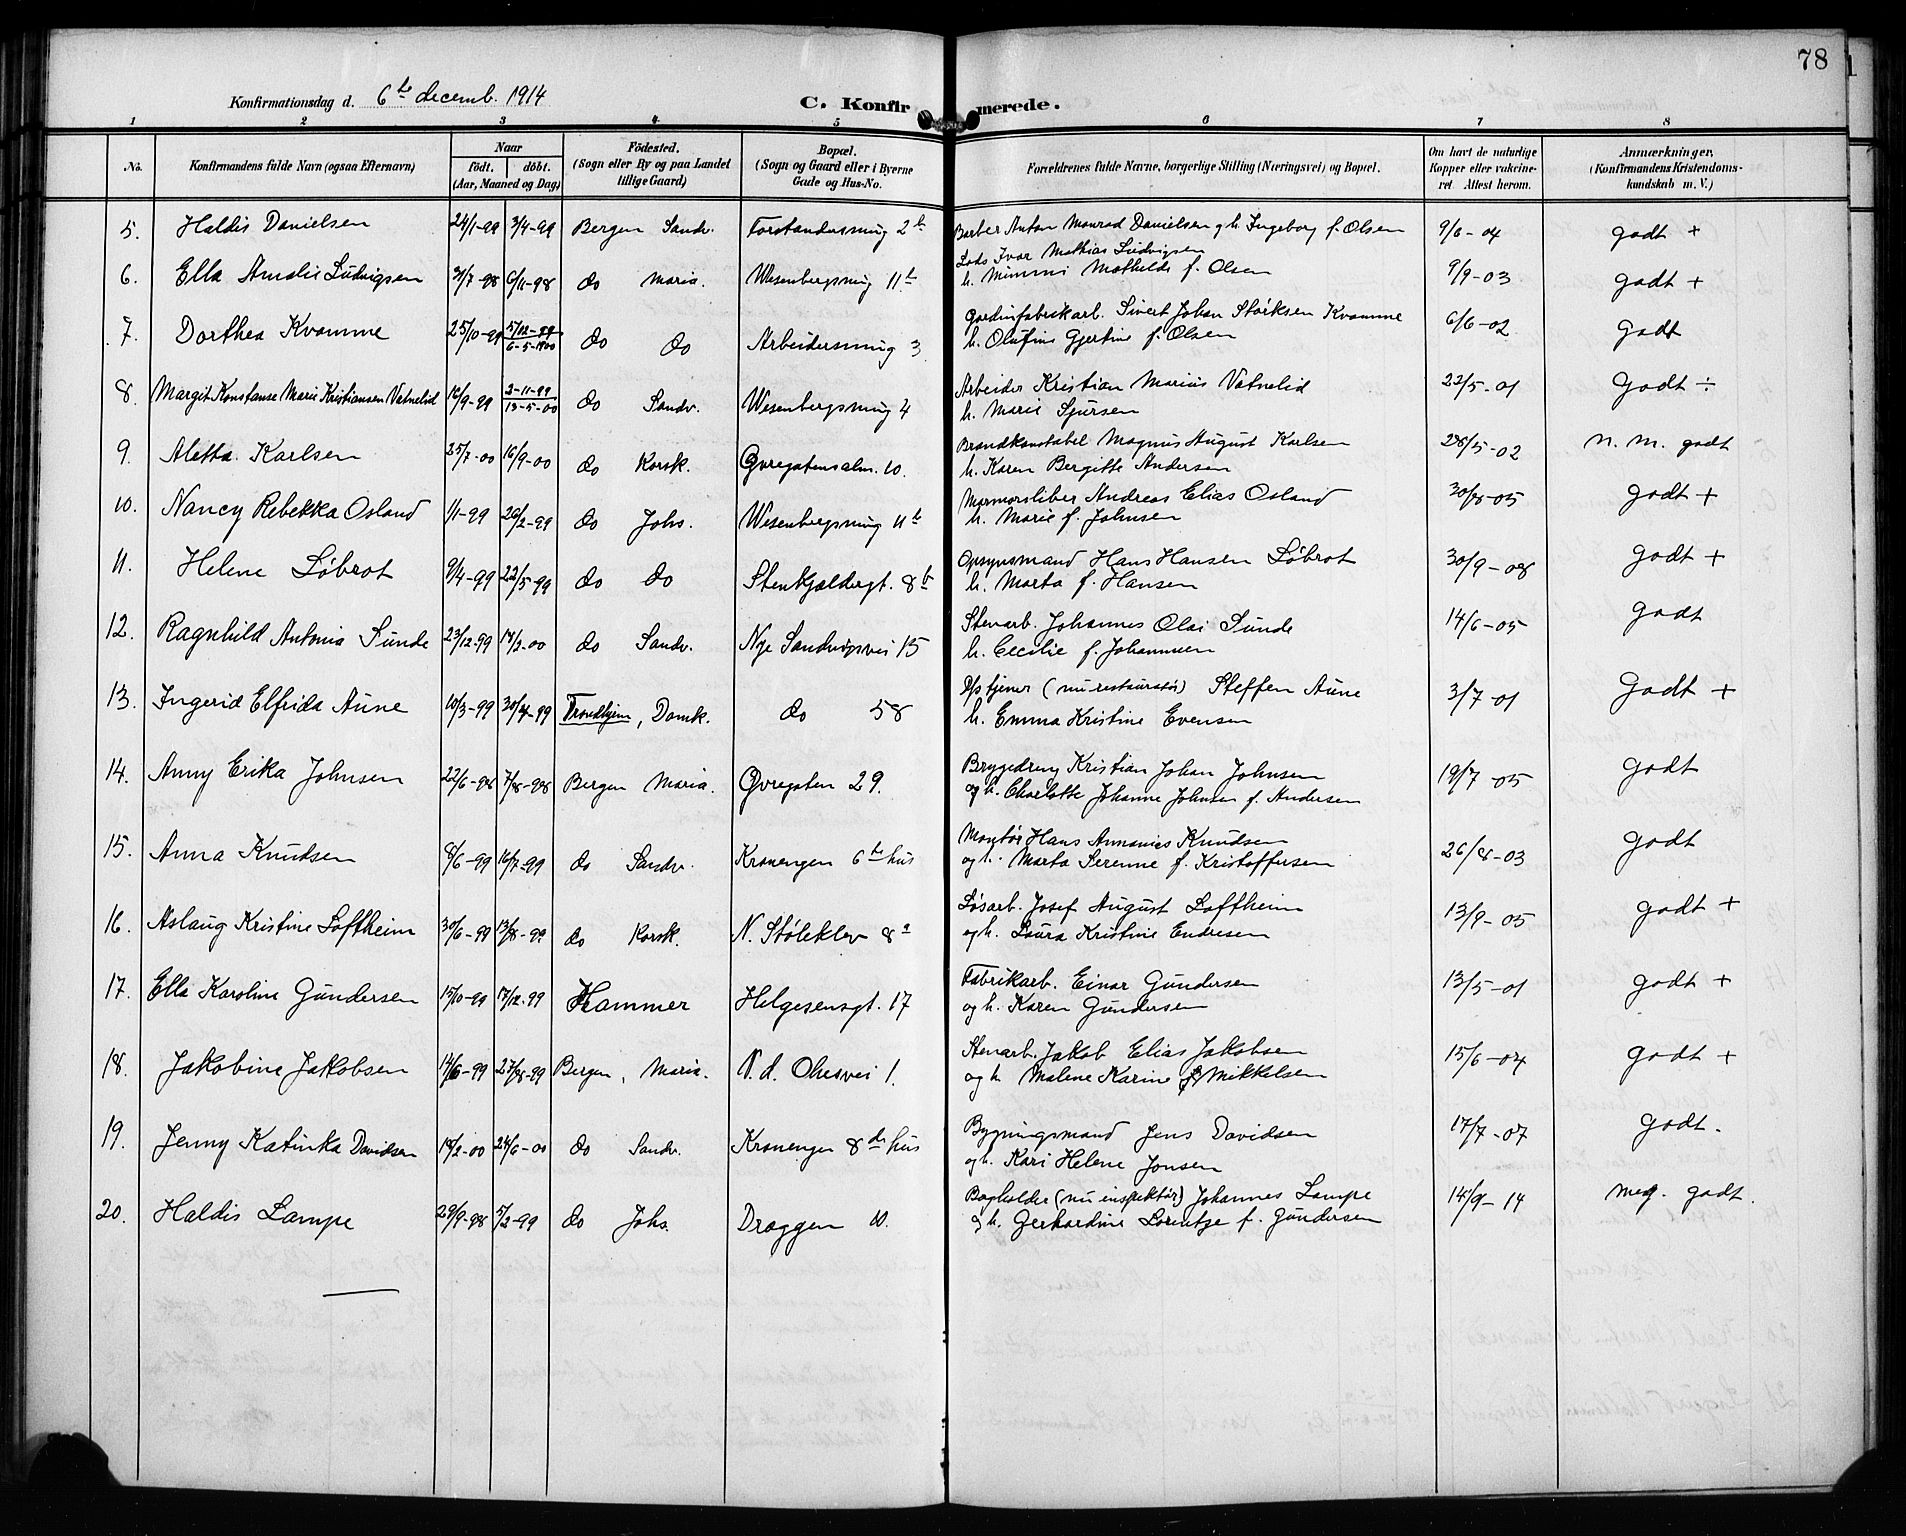 78
Konfirmationsdag d. 6te decemb. 1914
C. Konfirmerede.
1 2 3 4 5 6 7 8
No. Konfirmandens fulde Navn (ogsaa Efternavn) Naar födt. döbt. (Aar, Maaned og Dag) Födested. (Sogn eller By og paa Landet tillige Gaard) Bopæl. (Sogn og Gaard eller i Byerne Gade og Hus-No. Forældrenes fulde Navne, borgerlige Stilling (Næringsvei) og Bopæl. Om havt de naturlige Kopper eller vakcineret. Attest herom. Anmærkninger, (Konfirmandens Kristendomskundskab m. V.)
5. Haldis Danielsen 24/1-99 3/4-99 Bergen Sandv. Forstandersmug 2b Barber Anton Monrad Danielsen g. h. Ingeborg f. Olsen 9/6-04 godt +
6. Ella Amalie Ludvigsen 31/7-98 6/11-98 do Maria. Wesenbergsmug 11b Lods Ivar Mathias Ludvigsen
h. Mimmi Mathilde f. Olsen 9/9-03 godt +
7. Dorthea Kvamme 25/10-99 5/12-99 6-5-1900 do do Arbeidersmug 3 Gardinfabrikarb. Sivert Johan Størksen Kvamme
h. Olufine Gjertine f. Olsen 6/6-02 godt
8. Margit Konstanse Marie Kristiansen Vatnelid 16/9-99 2-11-99 13-5-00 do Sandv. Wesenbergsmug 4 Arbeider Kristian Marius Vatnelid
h. Marie Sjursen 22/5-01 Godt ÷
9. Aletta Karlsen 25/7-00 16/9-00 do Korsk. Øvregatensalm. 10. Brandkonstabel Magnus August Karlsen
h. Karen Bergitte Andersen 28/5-02 n. m. godt
10. Nancy Rebekka Osland 1/1-99 26/2-99 do Johs. Wesenbergsmug 11b Marmorsliber Andreas Elias Osland
h. Marie f. Johnsen 30/8-05 godt +
11. Helene Løbrot 9/4-99 22/5-99 do do Stenkjeldergt. 8b Opsynsmand Hans Hansen Løbrot
h. Marta f. Hansen 30/9-08 godt +
12. Ragnhild Antonia Sunde 23/12-99 18/3-00 do Sandv. Nye Sandviksvei 15 Stenarb. Johannes Olai Sunde
h. Cecilie f. Johannesen 14/6-05 godt
13. Ingerid Elfrida Aune 10/3-99 30/4-99 Trondhjem, Domk. do 58 D/s tjener (nu restauratør) Steffen Aune
h. Emma Kristine Evensen 3/7-01 Godt +
14. Anny Erika Johnsen 22/6-98 7/8-98 Bergen Maria. Øvregaten 29. Bryggedreng Kristian Johan Johnsen
og h. Charlotte Johanne Johnsen f. Andersen 19/7-05 godt
15. Anna Knudsen 8/6-99 16/7-99 do Sandv. Kronengen 6te hus Montør Hans Annanias Knudsen
og h. Marta Serenne f. Kristoffersen 26/8-03 godt
16. Aslaug Kristine Loftheim 30/6-99 13/8-99 do Korsk. N. Stølekleiv 8a Løsarb. Josef August Loftheim
og h. Laura Kristine Endresen 13/9-05 godt +
17. Ella Karoline Gundersen 15/10-99 17/12-99 Hammer Helgesensgt. 17 Fabrikarb. Einar Gundersen
og h. Karen Gundersen 13/5-01 godt +
18. Jakobine Jakobsen 14/6-99 27/8-99 Bergen, Maria. N. d. Ohesvei 1. Stenarb. Jakob Elias Jakobsen
og h. Malene Karine f. Mikkelsen 15/6-04 godt +
19. Jenny Katinka Davidsen 18/2-00 24/6-00 do Sandv. Kronengen 8de hus Bygningsmand Jens Davidsen
og h. Kari Helene Jonsen 17/7-07 godt.
20. Haldis Lampe 29/9-98 5/2-99 do Johs. Dreggen 10. Bogholder (nu inspektør) Johannes Lampe
g. h. Gerhardine Lorentze f. Gundersen 14/9-14 meg. godt.